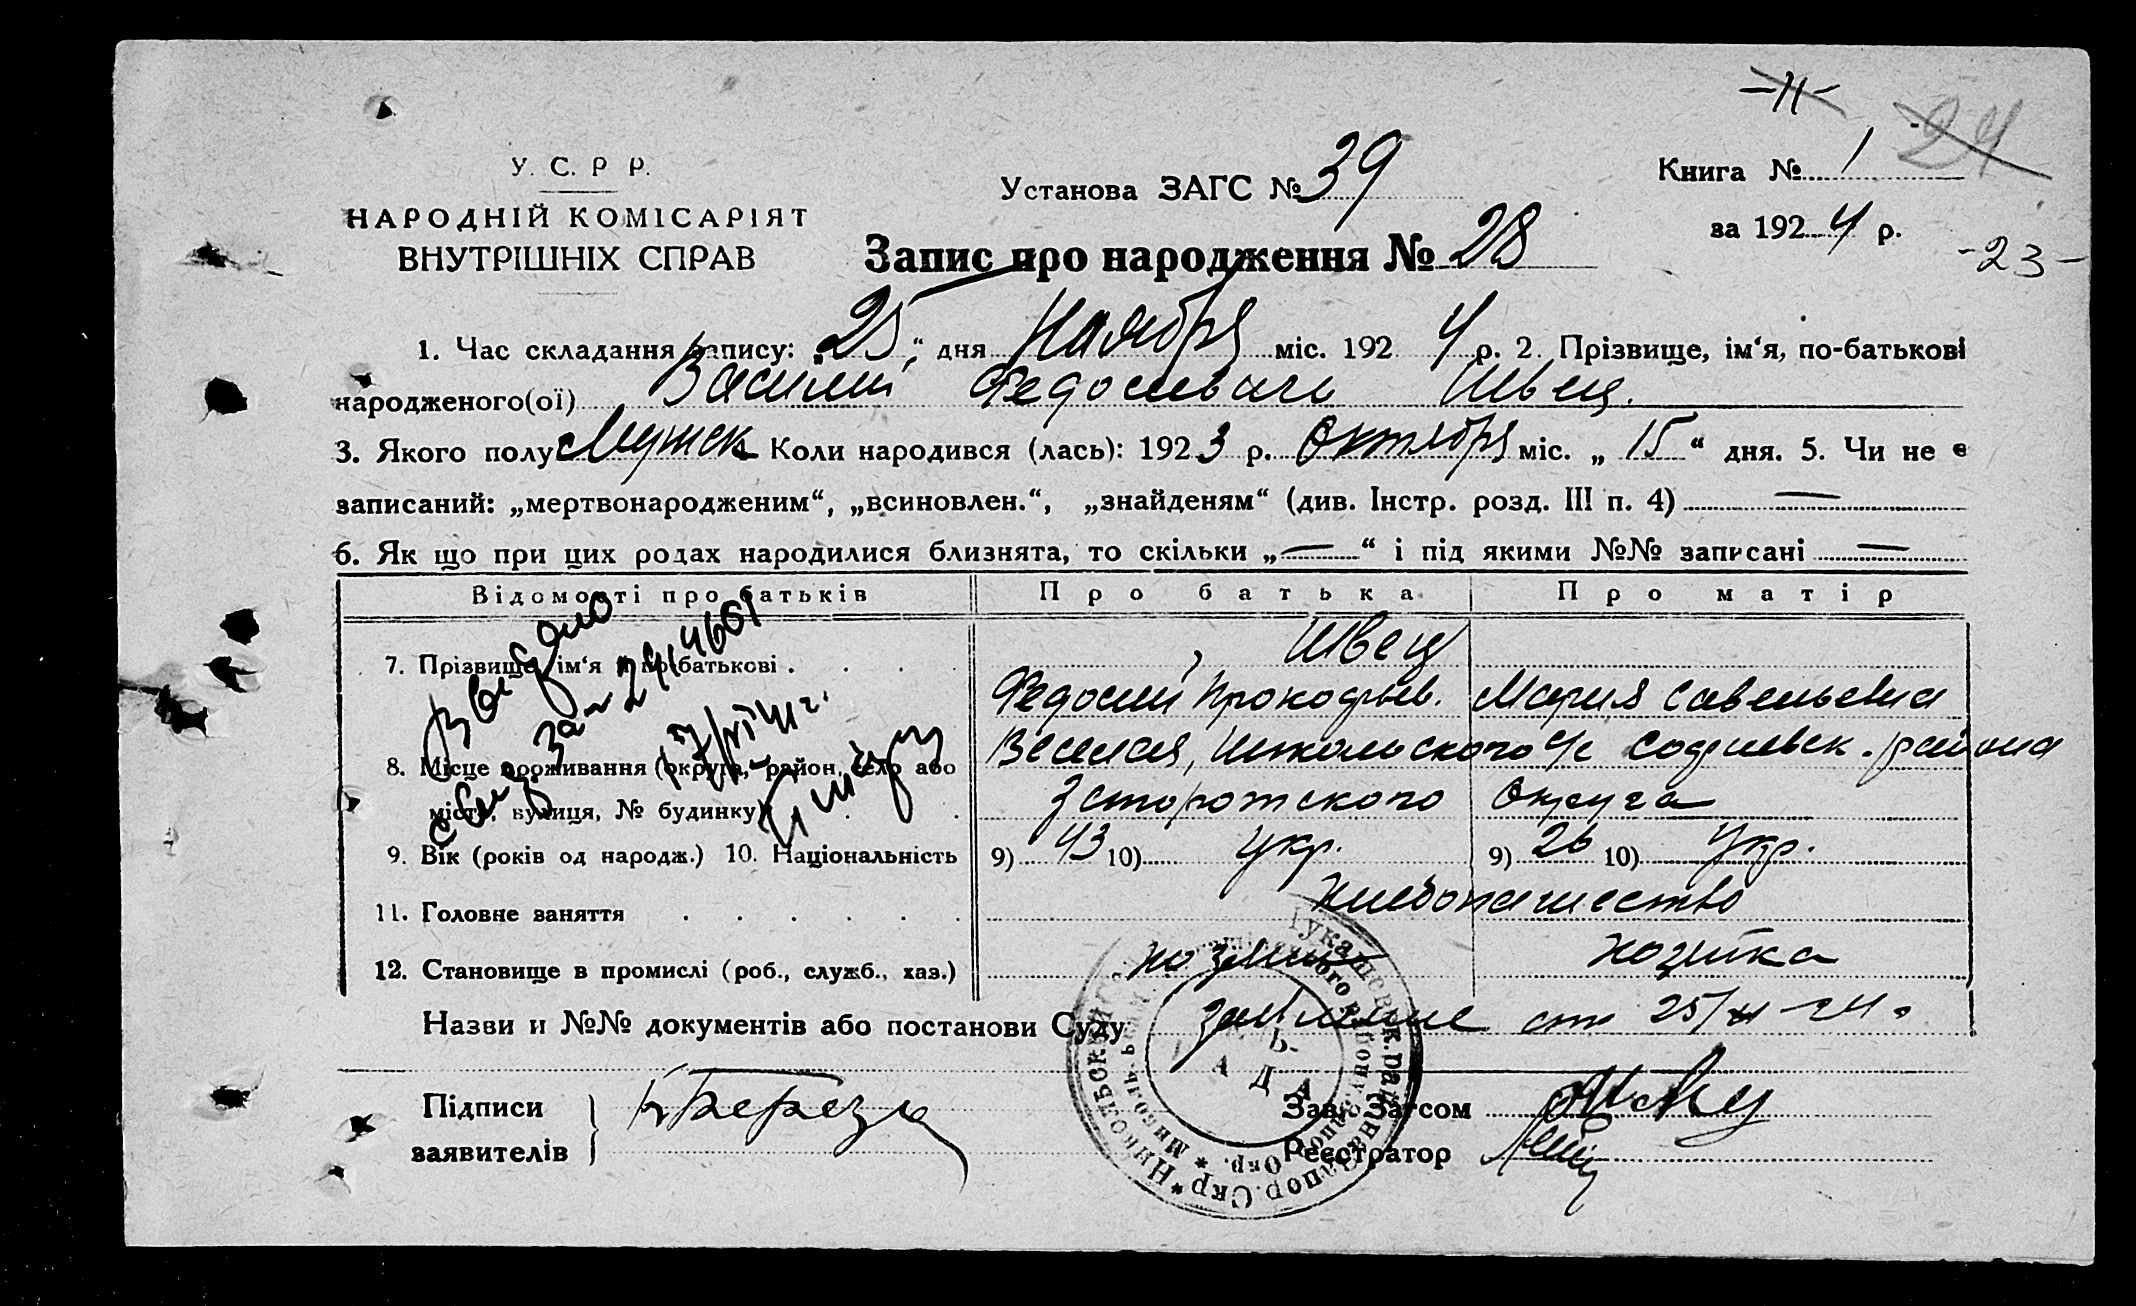 -11-
24
У. С. Р Р.
Установа ЗАГС № 39
Книга № 1
НАРОДНІЙ КОМІСАРІЯТ
ВНУТРІШНІХ СПРАВ
за 1924 р.
-23-
Запис про народження № 28
1. Час складання запису: „25“ дня Ноября міс. 1924 р. 2. Прізвище, ім‘я, по-батькові
народженого(ої) Василий Федосиевич Швец.
3. Якого полу Мужск Коли народився (лась): 1923 р. Октября міс. „15“ дня. 5. Чи не є
записаний: „мертвонародженим“, „всиновлен.“, „знайденям“ (див. Інстр. розд. III п. 4) —
6. Як що при цих родах народилися близнята, то скільки „—“ і під якими №№ записані —
Відомості про батьків Про батька Про матір
Швец
7. Прізвище, ім‘я і по-батькові
Федосий Прокофьев. Мария Савельевна
8. Місце проживання (округа, район, село або
місто, вулиця, № будинку)
Веселая, Никольского с/с Софиевск. района
Запорожского Округа
9. Вік (років од народж.) 10. Національність 9) 43 10) Укр. 9) 26 10) Укр.
11. Головне заняття Хлебопашество
12. Становище в промислі (роб., служб., хаз.) хозяин хозяйка
Назви и №№ документів або постанови Суду заявление от 25/XI-24 г.
Підписи
заявителів
К Береза
Зав. Загсом
Реєстратор
Выдано
свид за №